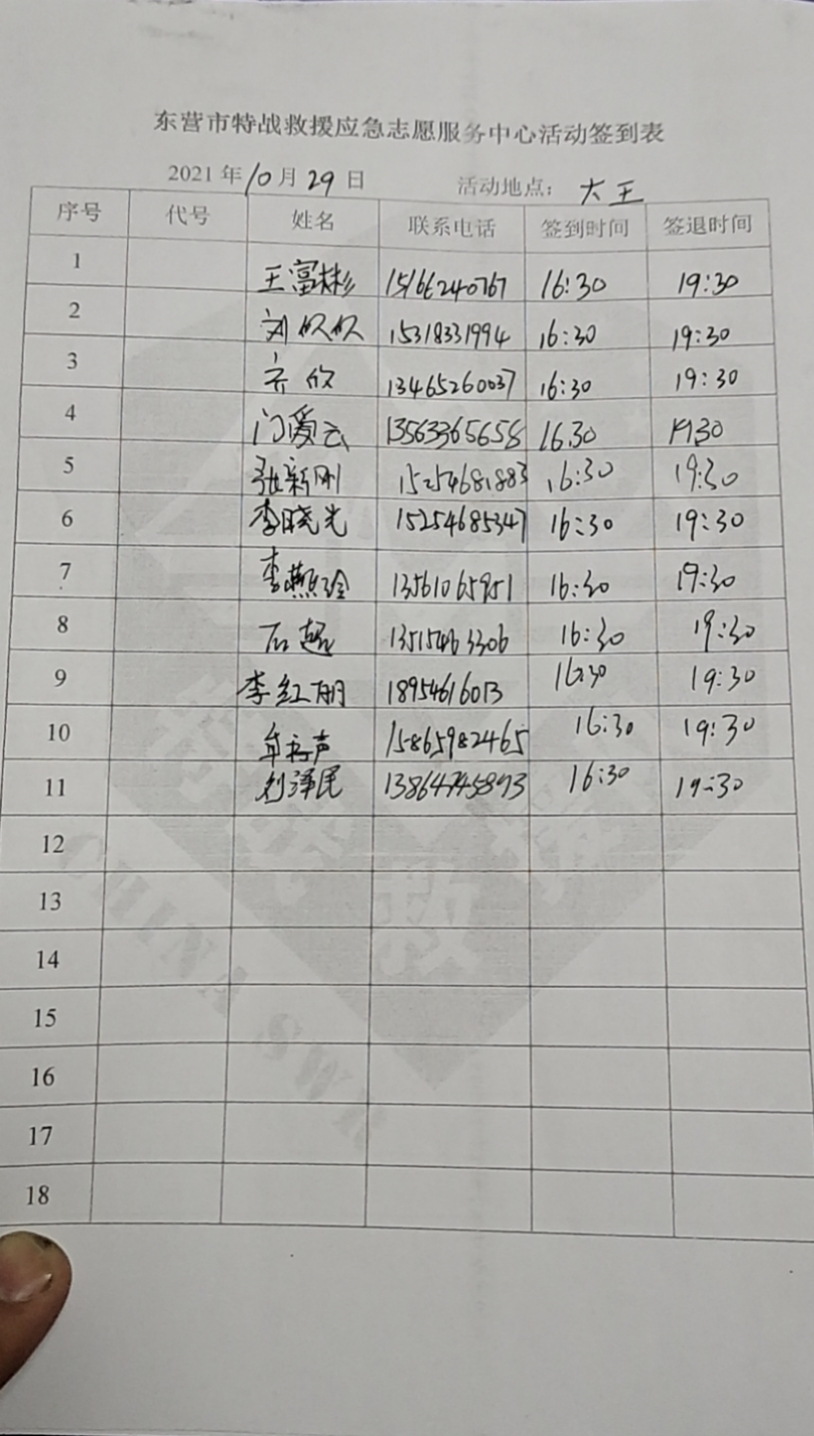 东营市特战救援应急志愿服务中心活动签到表
2021年10月29日 活动地点：大王
序号 代号 姓名 联系电话 签到时间 签退时间
1 王富彬 15166240767 16:30 19:30
2 刘 15318331994 16:30 19:30
3 齐欣 13465260037 16:30 19:30
4 门爱云 13563365658 16.30 19:30
5 张新刚 15254681883 16:30 19:30
6 李晓光 15254685347 16:30 19:30
7 李燕玲 13561065951 16:30 19:30
8 石超 13515463306 16:30 19:30
9 李红朋 18954616013 16:30 19:30
10 声 15865982465 16:30 19:30
11 刘泽民 16:30 19:30
12
13
14
15
16
17
18
特战救援
CHINA SWR